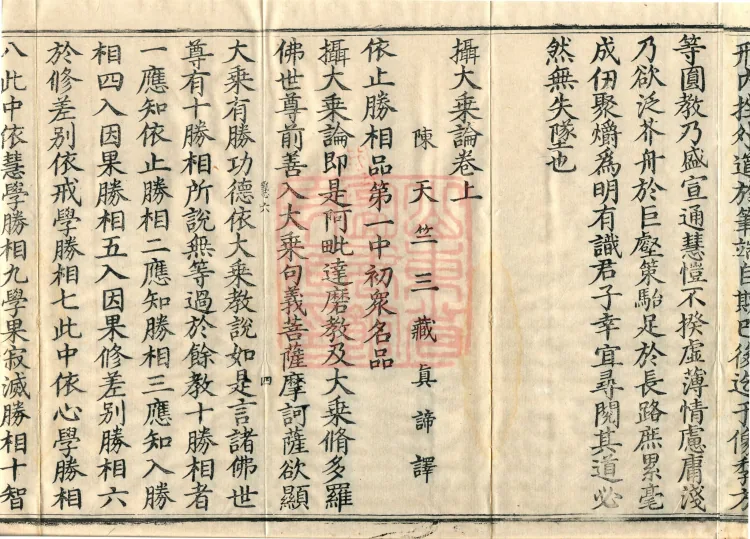 等圓教乃盛宣通慧愷不揆虛薄情慮庸淺
乃欲泛芥舟於巨壑策駘足於長路庶累毫
成仞聚爝爲明有識君子幸宜尋閱其道必
然無失墜也
攝大乗論卷上
陳天竺三藏眞諦譯
依止勝相品第一中初衆名品
攝大乗論即是阿毗達磨教及大乗脩多羅
佛世尊前善入大乗句義菩薩摩訶薩欲顯
六 四
大乗有勝功德依大乗教說如是言諸佛世
尊有十勝相所說無等過於餘教十勝相者
一應知依止勝相二應知勝相三應知入勝
相四入因果勝相五入因果修差别勝相六
於修差别依戒學勝相七此中依心學勝相
八此中依慧學勝相九學果寂滅勝相十智